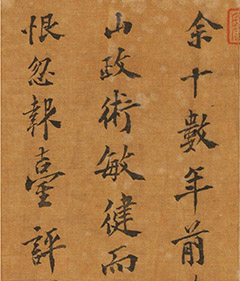 余十數年前
山政術敏健而
恨忽報臺評